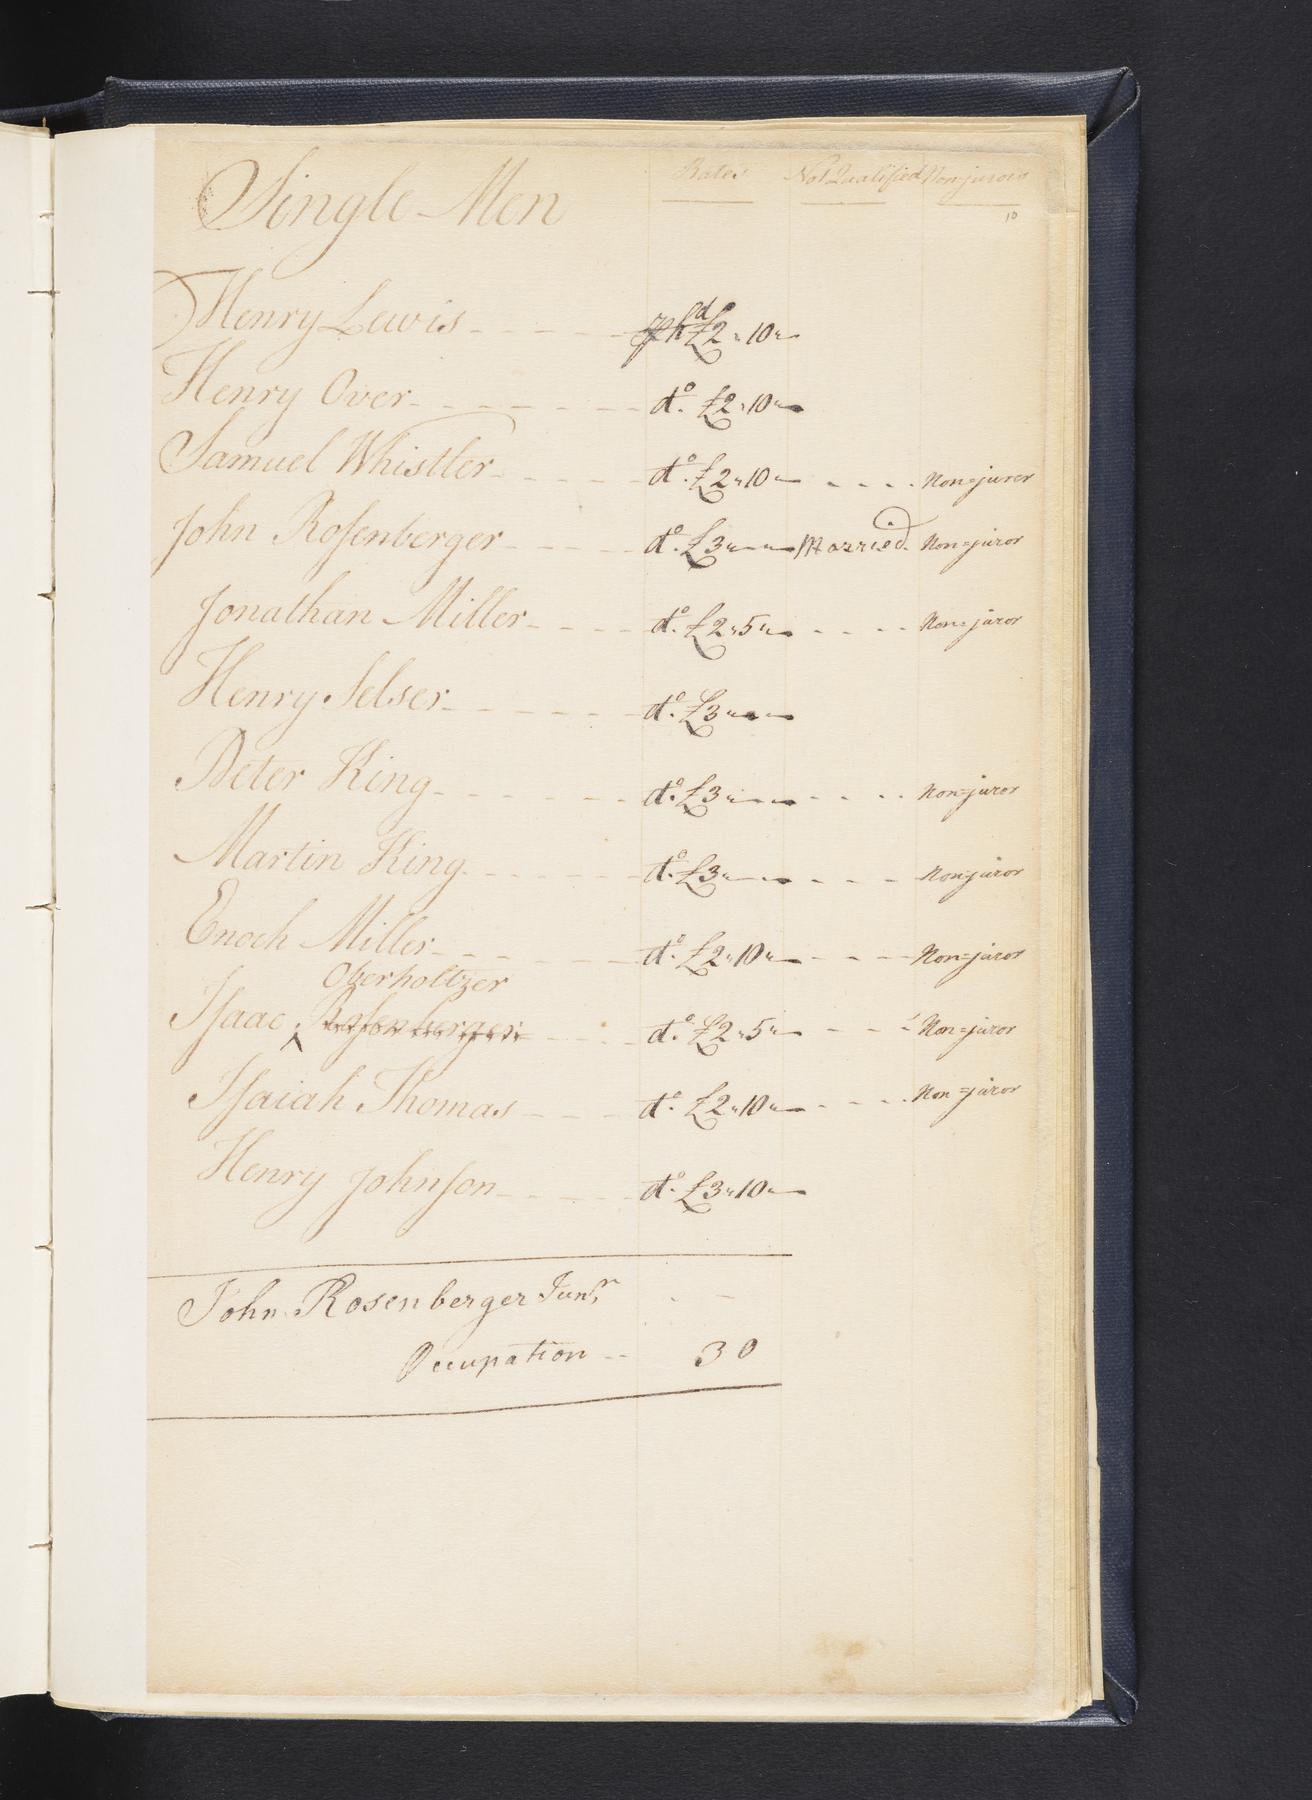 Single Men Rates Not Qualified Non-jurors
10
Henry Lewis - - - - - pr hd £2 " 10 "
Henry Over - - - - - do. £2 " 10 "
Samuel Whistler - - - - do. £2 " 10 " - - - - Non=juror
John Rosenberger - - - - do. £3 " " Married Non=juror
Jonathan Miller - - - - do. £2 " 5 " - - - - Non=juror
Henry Selser - - - - - do. £3 " "
Peter King - - - - - - do. £3 " " - - - Non=juror
Martin King - - - - - - do. £3 " " - - - Non=juror
Enoch Miller - - - - - do. £2 " 10 " - - - Non=juror
Oberholtzer
Isaac ^ Rosenberger - - - do. £2 " 5 " - - - Non=juror
Isaiah Thomas - - - do. £2 " 10 " - - - Non=juror
Henry Johnson - - - - do. £3 " 10 "
John Rosenberger Junr - -
Occupation - - 30